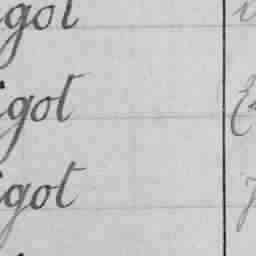 igot
igot
igot